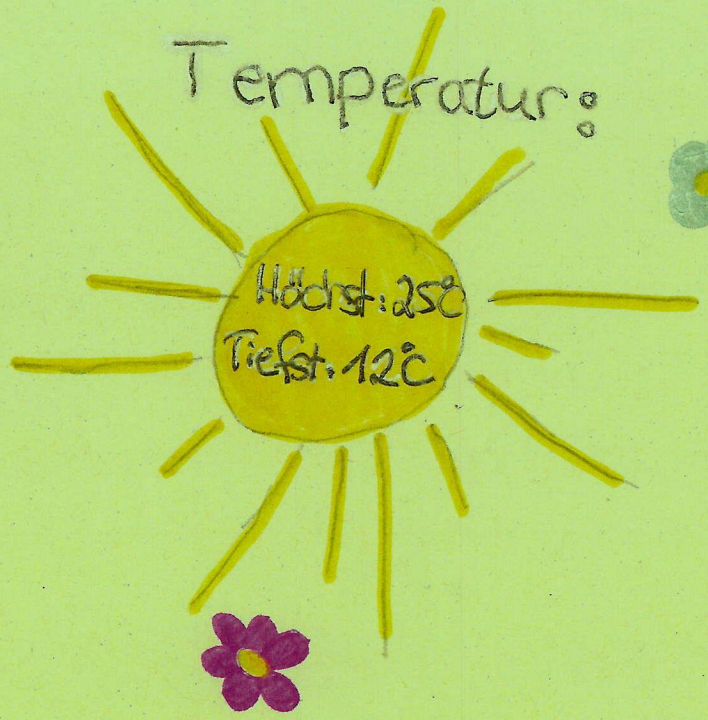 Temperatur:
Höchst.: 25°C
Tiefst. 12°C